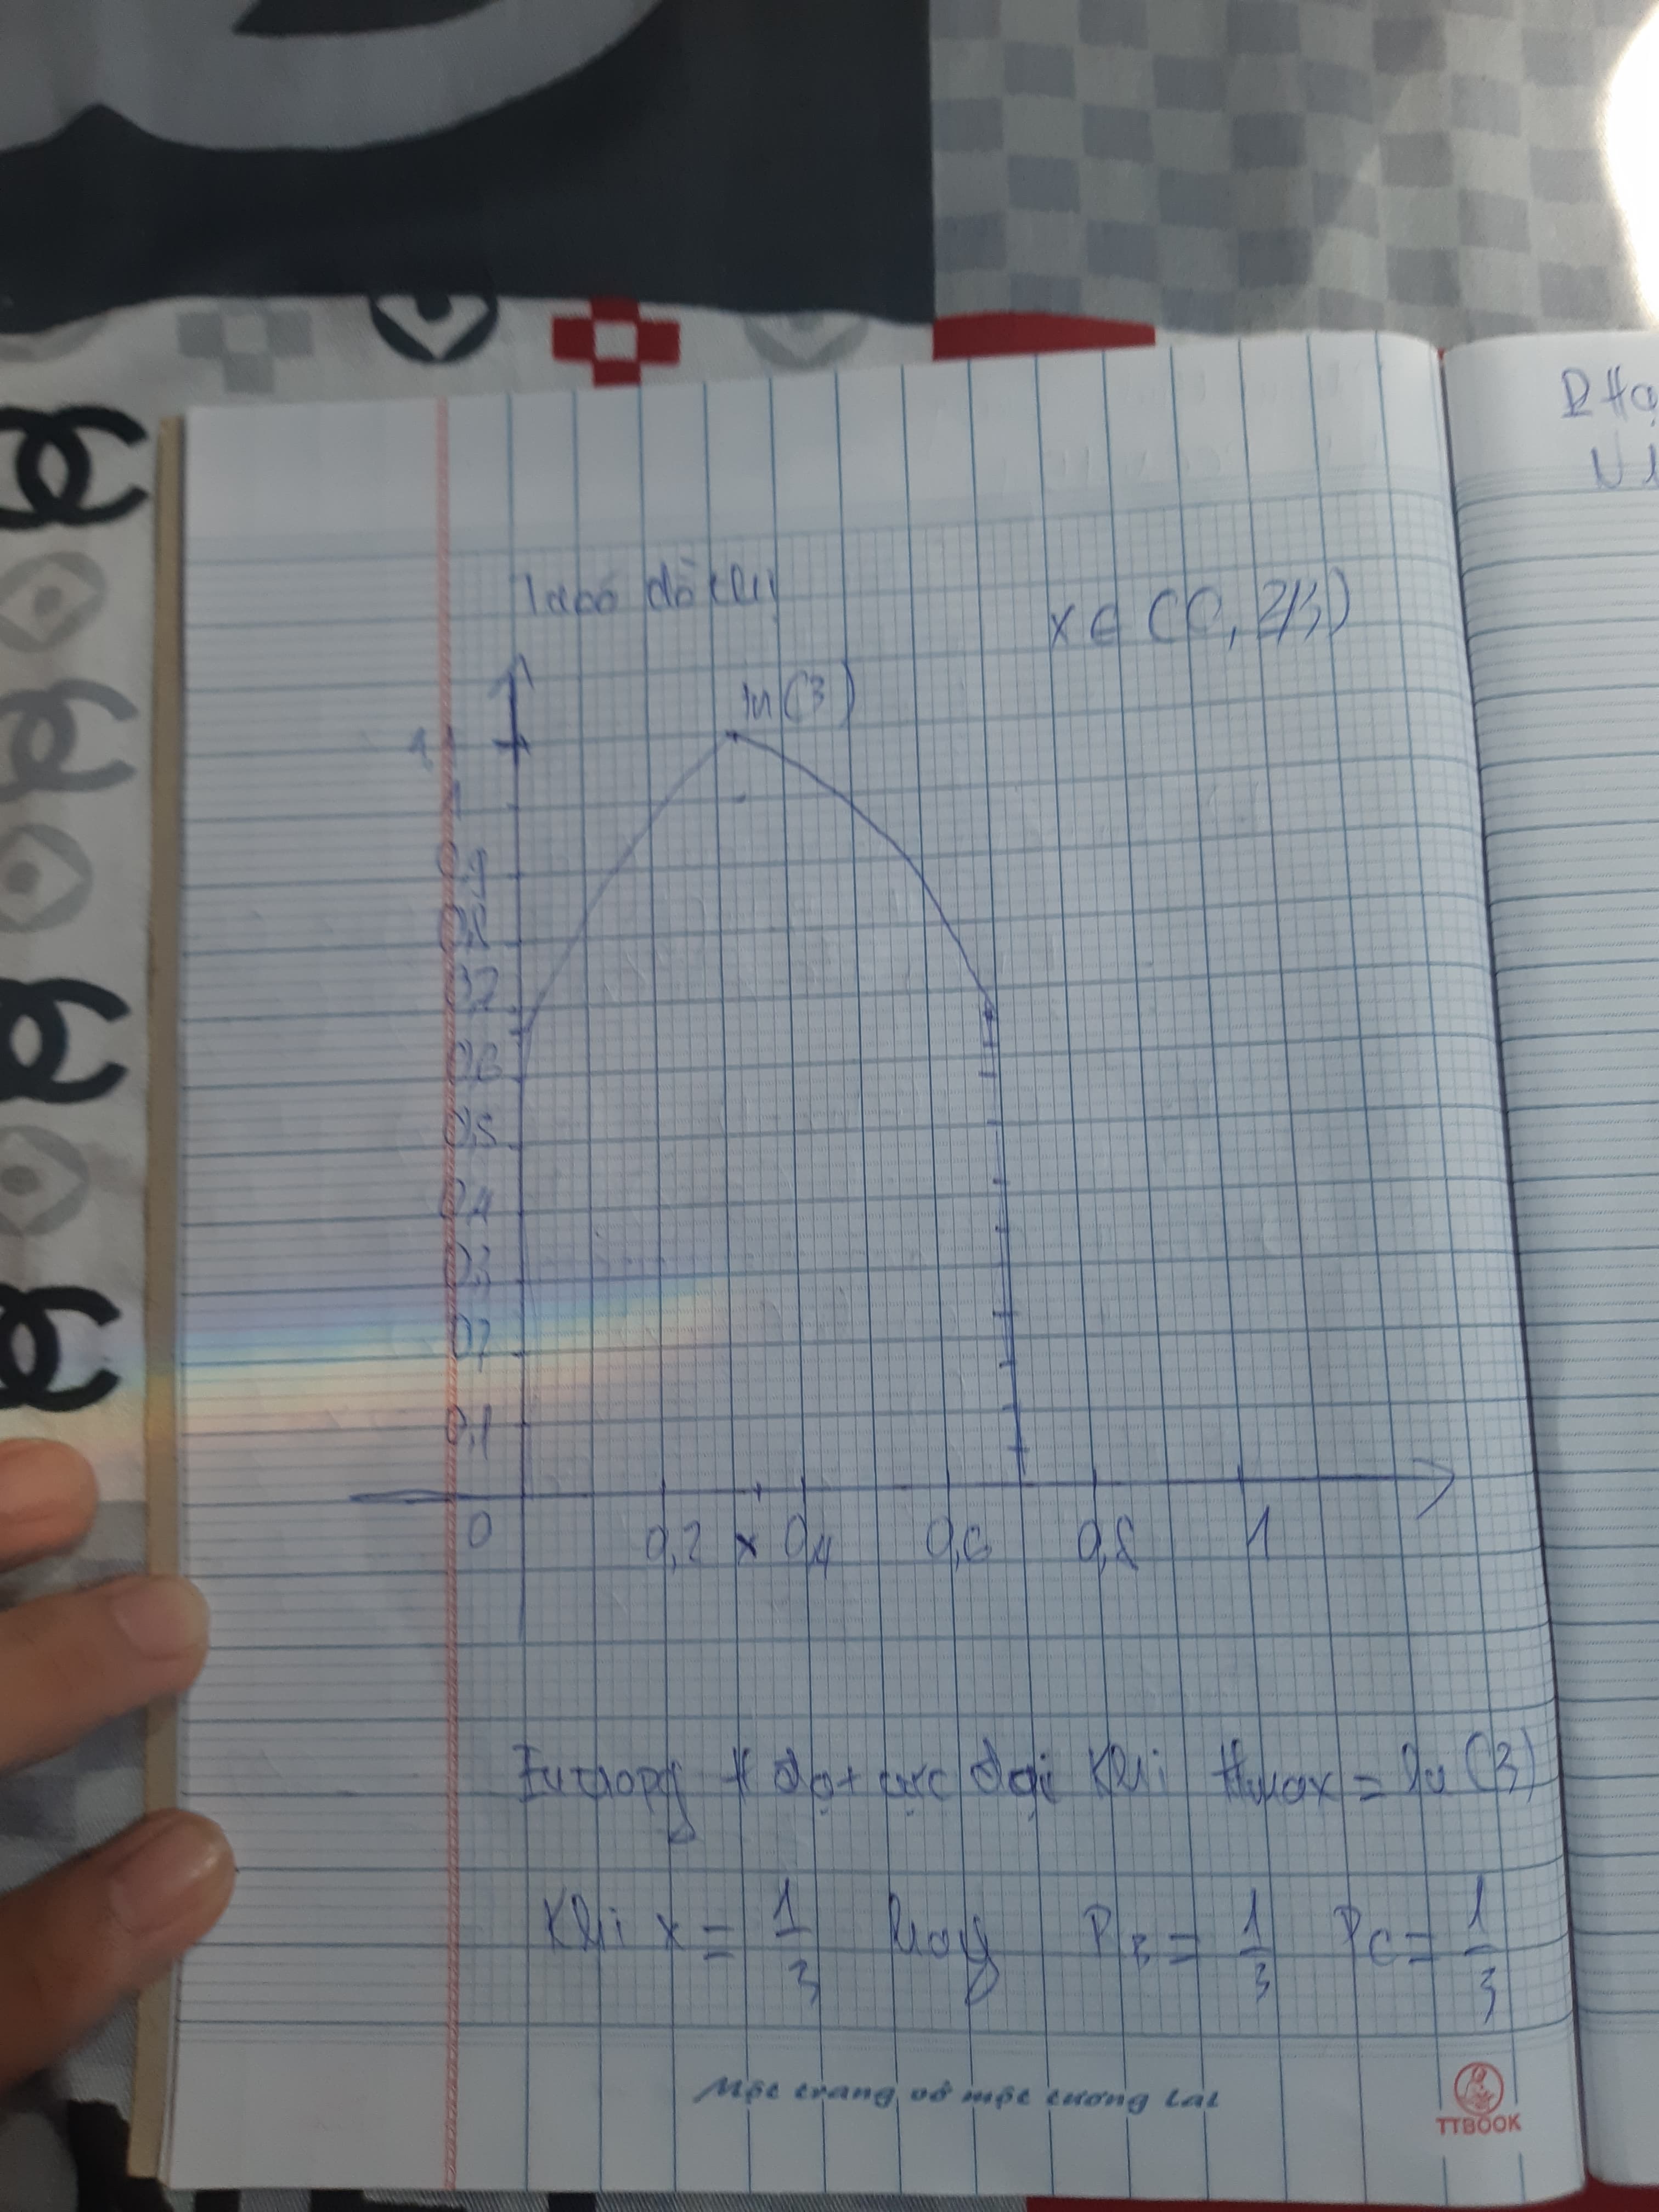 x ∈ (0, 2/3)
ln(3)
1
0,9
0,8
0,7
0,6
0,5
0,4
0,3
0,2
0,1
0 0,2 x 0,4 0,6 0,8 1
Entropy H đạt cực đại khi Hmax = ln (3)
Khi x = 1/3 hay PB = 1/3 PC = 1/3
Một trang vở một tương lai
TTBOOK